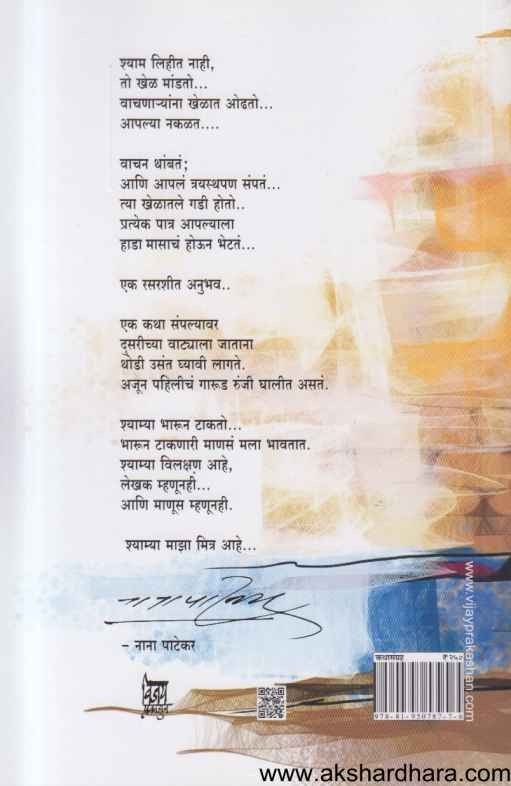 श्याम लिहीत नाही,
तो खेळ मांडतो...
वाचणाऱ्यांना खेळात ओढतो...
आपल्या नकळत....
वाचन थांबतं;
आणि आपलं त्रयस्थपण संपतं...
त्या खेळातले गडी होतो..
प्रत्येक पात्र आपल्याला
हाडा मासाचं होऊन भेटतं...
एक रसरशीत अनुभव..
एक कथा संपल्यावर
दुसरीच्या वाट्याला जाताना
थोडी उसंत घ्यावी लागते.
अजून पहिलीचं गारूड रुंजी घालीत असतं.
श्याम्या भारून टाकतो...
भारून टाकणारी माणसं मला भावतात.
श्याम्या विलक्षण आहे,
लेखक म्हणूनही...
आणि माणूस म्हणूनही.
श्याम्या माझा मित्र आहे...
नाना पाटेकर
– नाना पाटेकर
विजय
प्रकाशन
www.vijayprakashan.com
कथासंग्रह
www.akshardhara.com